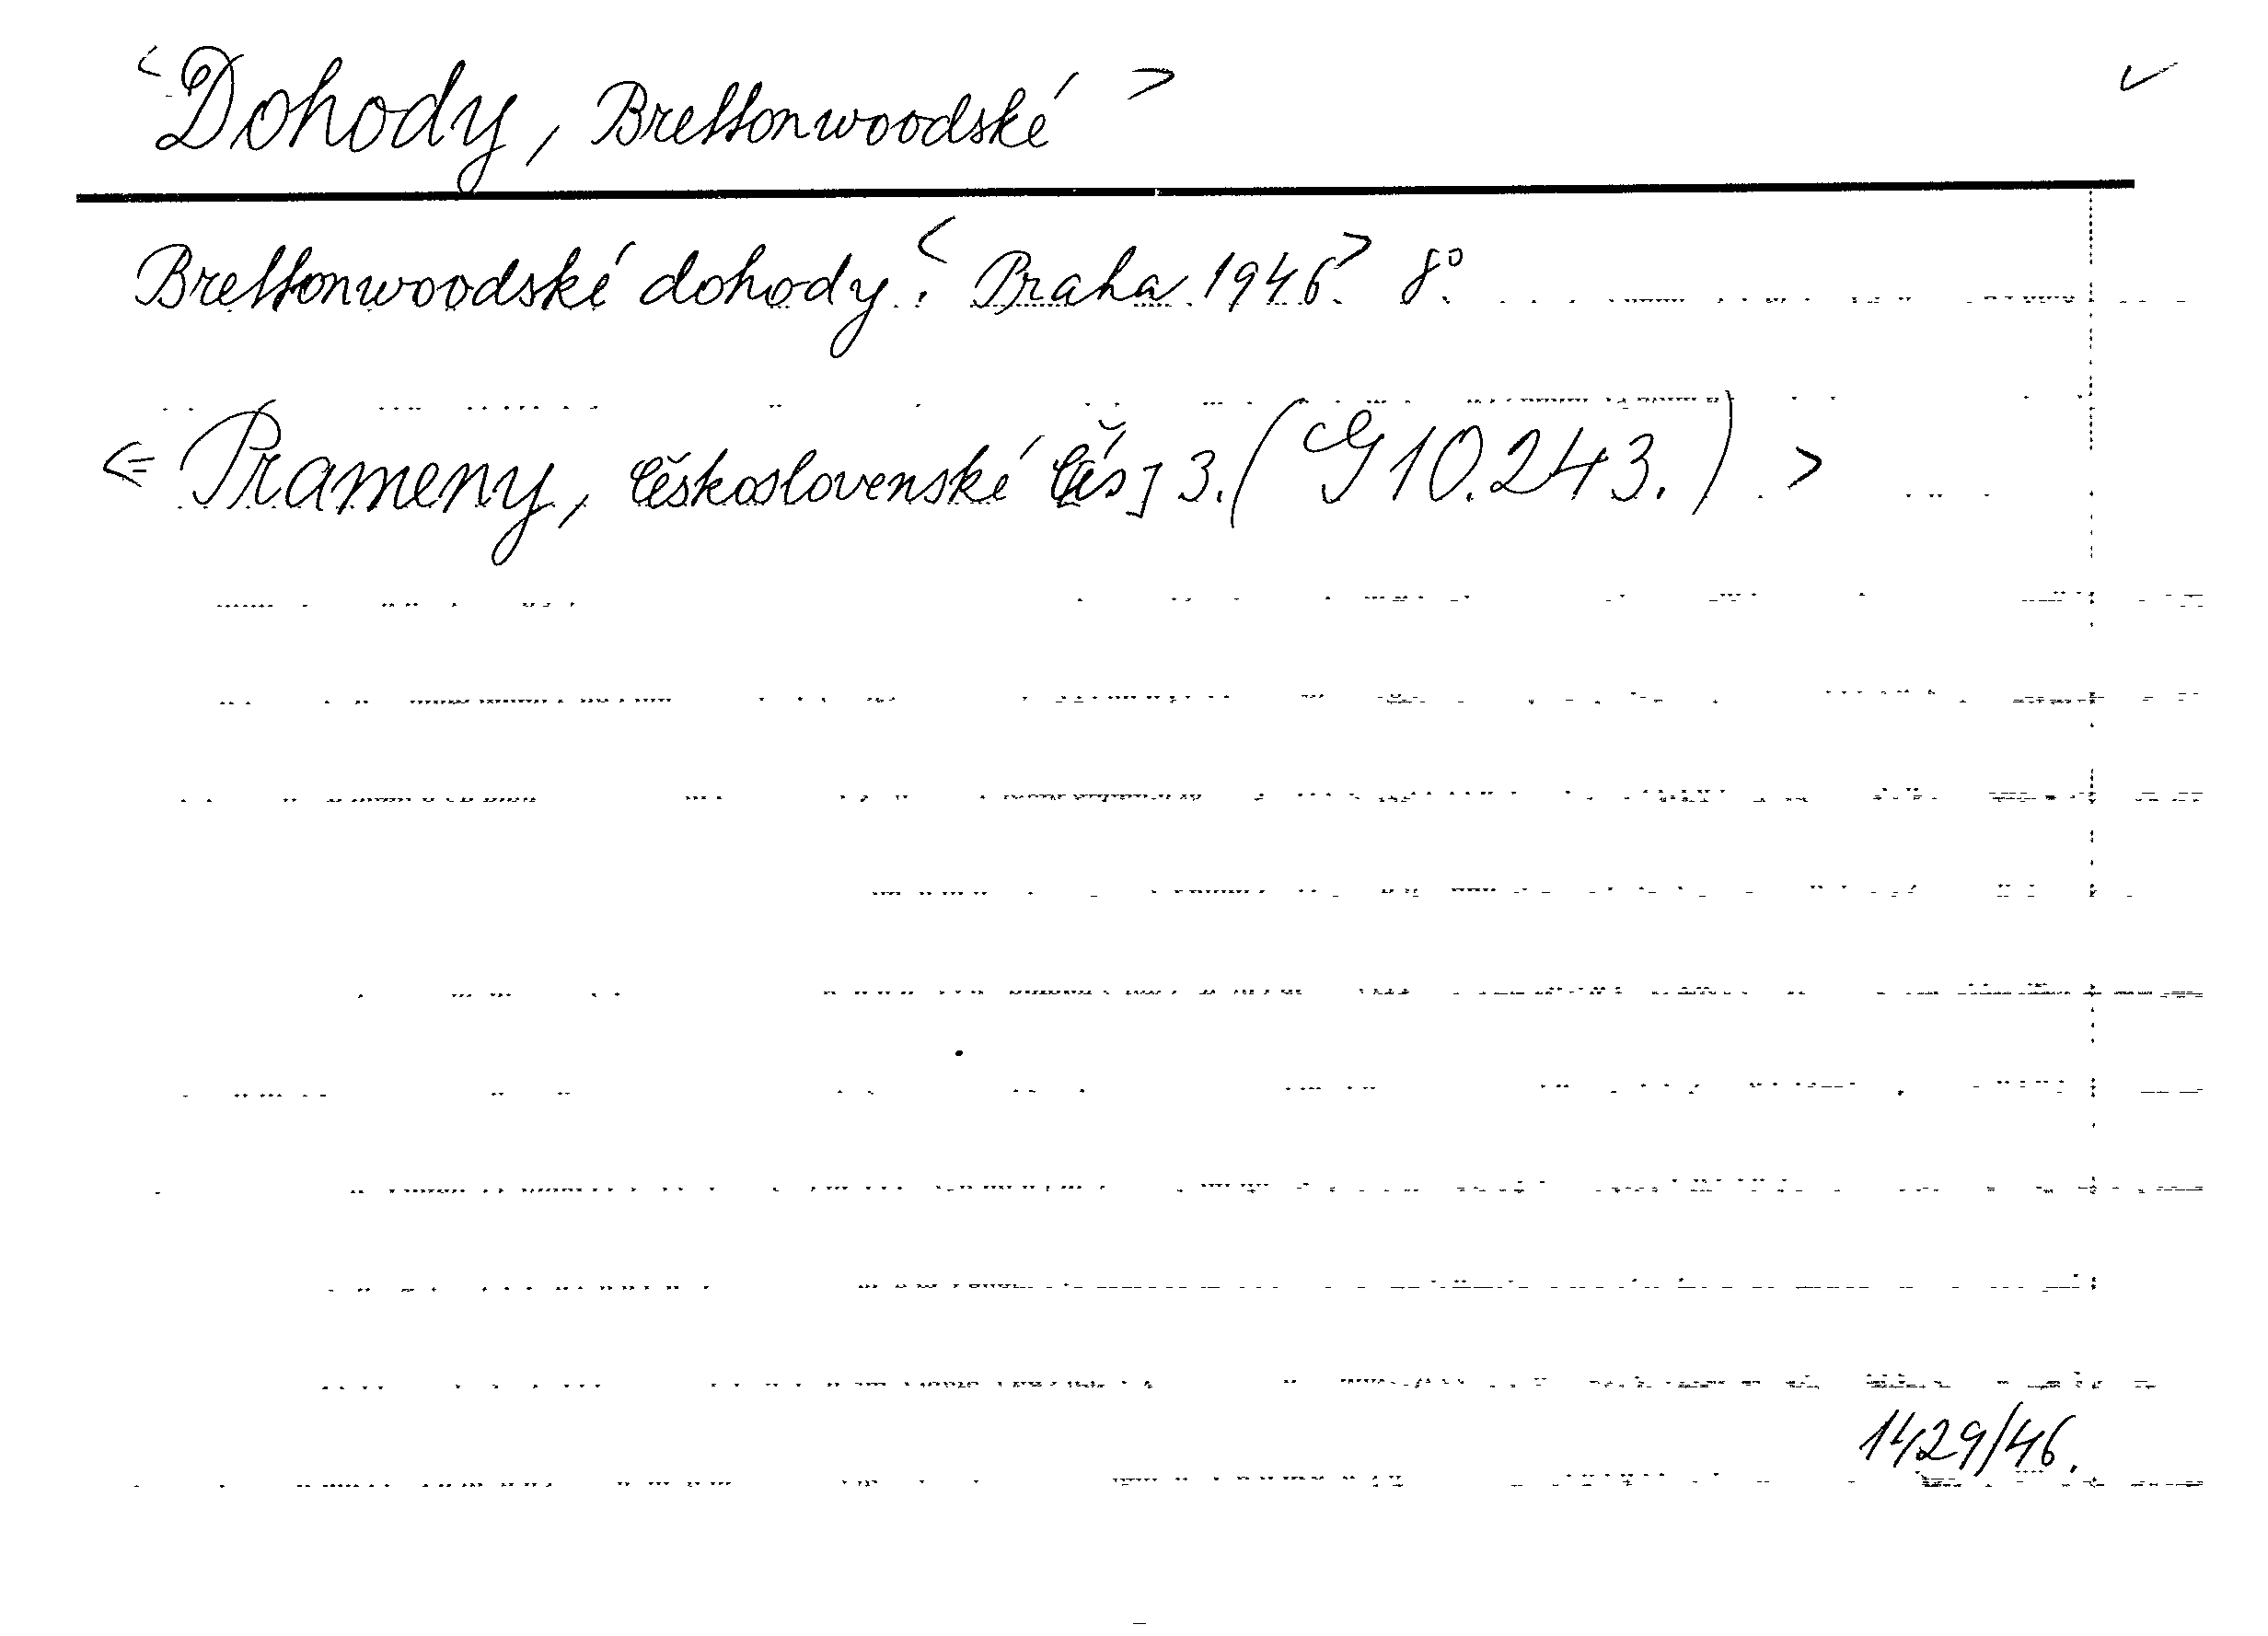 <Dohody, Brettonwoodské> ✓
Brettonwoodské dohody.<Praha 1946> 8°
<= Prameny, Československé Čís] 3. (G 10.243.) >
1429/46.